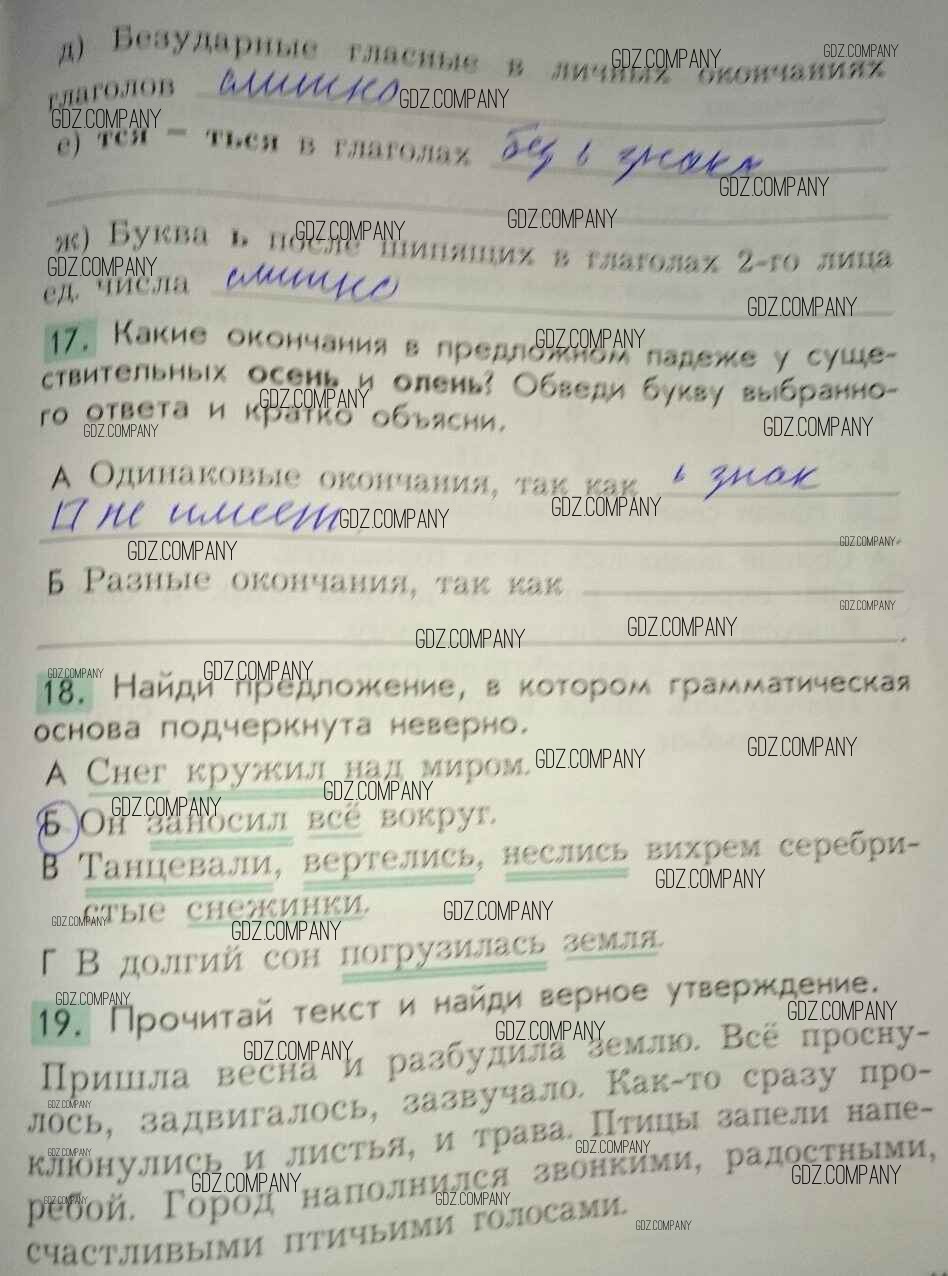 д) Безударные гласные в личных окончаниях
глаголов слишко
е) тся – ться в глаголах без ь знака
ж) Буква ь после шипящих в глаголах 2-го лица
ед. числа слишко
17. Какие окончания в предложном падеже у суще-
ствительных осень и олень? Обведи букву выбранно-
го ответа и кратко объясни.
А Одинаковые окончания, так как ь знак
П не имеет.
Б Разные окончания, так как
18. Найди предложение, в котором грамматическая
основа подчеркнута неверно.
А Снег кружил над миром.
Б Он заносил всё вокруг.
В Танцевали, вертелись, неслись вихрем серебри-
стые снежинки.
Г В долгий сон погрузилась земля.
19. Прочитай текст и найди верное утверждение.
Пришла весна и разбудила землю. Всё просну-
лось, задвигалось, зазвучало. Как-то сразу про-
клюнулись и листья, и трава. Птицы запели напе-
ребой. Город наполнился звонкими, радостными,
счастливыми птичьими голосами.
GDZ.COMPANY